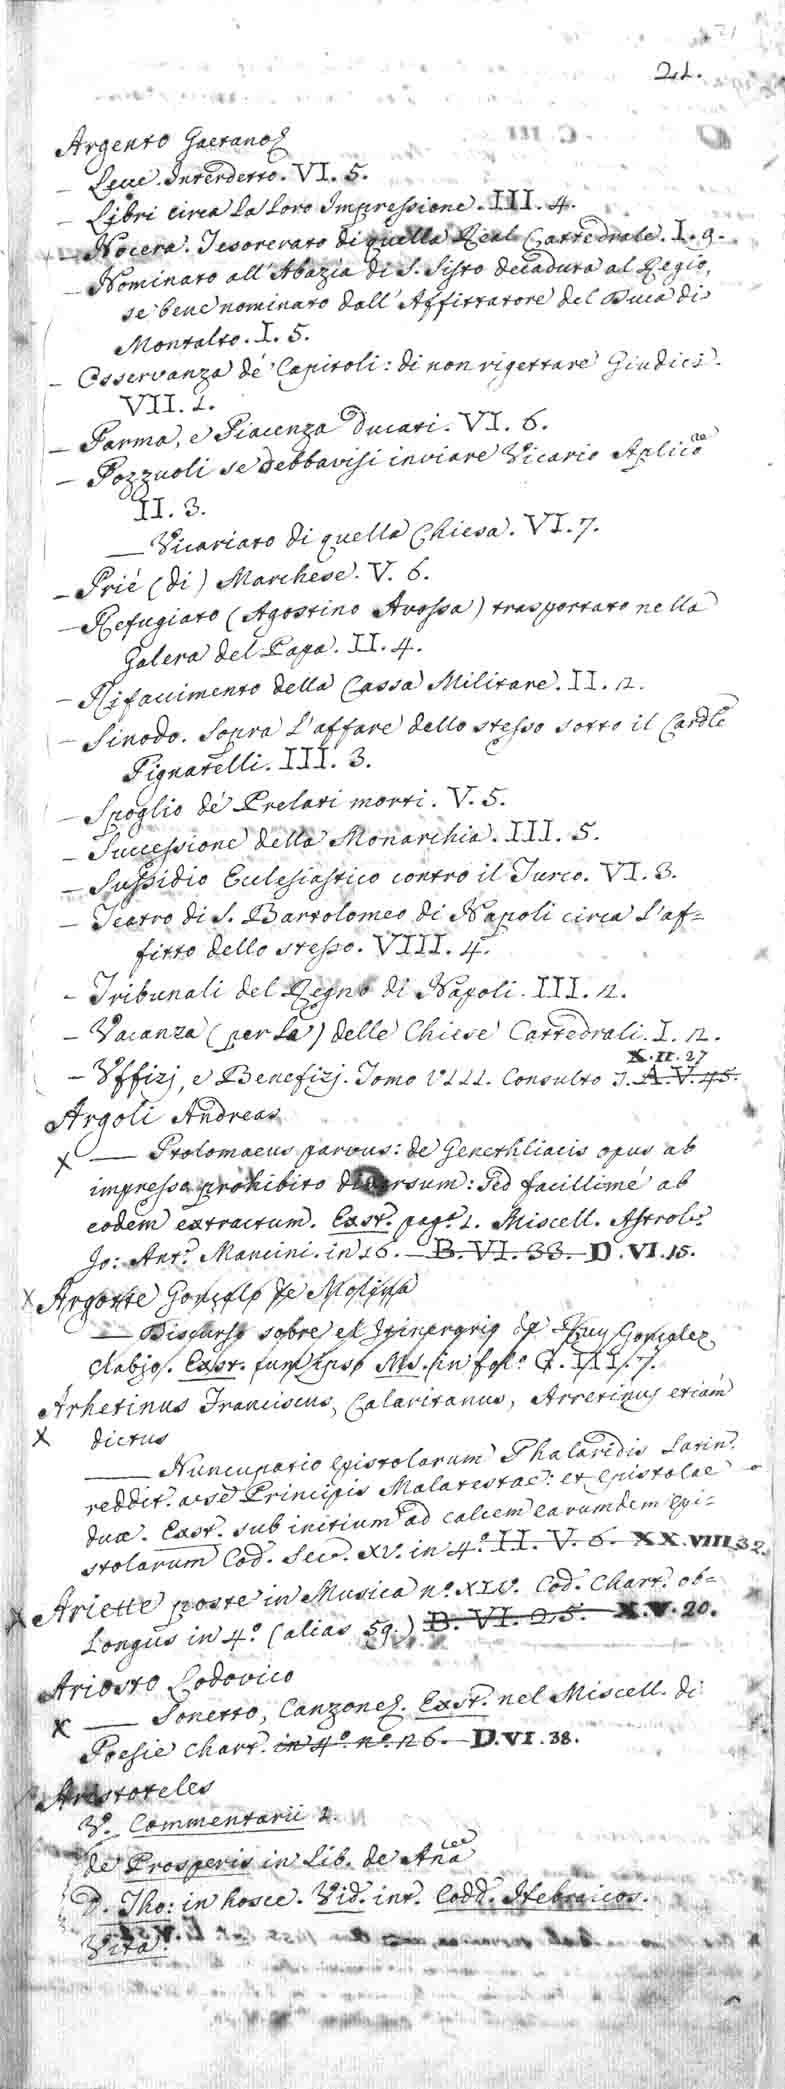 21.
Argento Gaetano
— Lecce. Interdetto. VI. 5.
— Libri circa la loro Impressione. III. 4.
— Nocera. Tesorerato di quella Real Cattedrale. I. 9.
— Nominato all'Abazia di S. Sisto decaduta al Regio,
se bene nominato dall'Affittatore del Duca di
Montalto. I. 5.
— Osservanza de' Capitoli: di non rigettare Giudici.
VII. 1.
— Parma, e Piacenza Ducati. VI. 6.
— Pozzuoli se debbavisi inviare Vicario Aplico
II. 3.
— Vicariato di quella Chiesa. VI. 7.
— Prié (di) Marchese. V. 6.
— Refugiato (Agostino Avossa) trasportato nella
Galera del Papa. II. 4.
— Rifacimento della Cassa Militare. II. 2.
— Sinodo. Sopra l'affare dello stesso sotto il Cardle
Pignatelli. III. 3.
— Spoglio de' Prelati morti. V. 5.
— Successione della Monarchia. III. 5.
— Sussidio Ecclesiastico contro il Turco. VI. 3.
— Teatro di S. Bartolomeo di Napoli circa l'af=
fitto dello stesso. VIII. 4.
— Tribunali del Regno di Napoli. III. 2.
— Vacanza (per la) delle Chiese Cattedrali. I. 2.
X. II. 27
— Uffizj, e Benefizj. Tomo VIII. Consulto 7. A. V. 45.
Argoli Andreas
X — Ptolomaeus parvus: de Genethliacis opus ab
impresso prohibito diversum: sed facillimé ab
eodem extractum. Exst. pag. 1. Miscell. Astrol.
Jo: Ant. Mancini. in 16. — B. VI. 33. — D. VI. 15.
X Argotte Gonçalo de Molina
— Discurso sobre el Itinerario de Ruy Gonzalez
Clabjo. Exst. cum ipso Ms. in fol. G. III. 7.
Arhetinus Franciscus, Calaritanus, Arretinus etiam
X dictus
— Nuncupatio epistolarum Phalaridis Latin.
reddit. a se Principis Malatestae: et epistolae
duae. Exst. sub initium ad calcem earumdem epi=
stolarum Cod. Sec. XV. in 4.º II. V. 6. XX. VIII. 32.
X Ariette poste in Musica nº. XIV. Cod. Chart. ob=
longus in 4.º (alias 59.) B. VI. 25. X. V. 20.
Ariosto Lodovico
X — Sonetto, Canzone. Exst. nel Miscell. di
Poesie chart. in 4º. nº. 26. D. VI. 38.
Aristoteles
V. Commentarii 1.
de Prosperis in Lib. de Ana
D. Tho: in hosce. Vid. int. Codd. Hebraicos.
Vita.